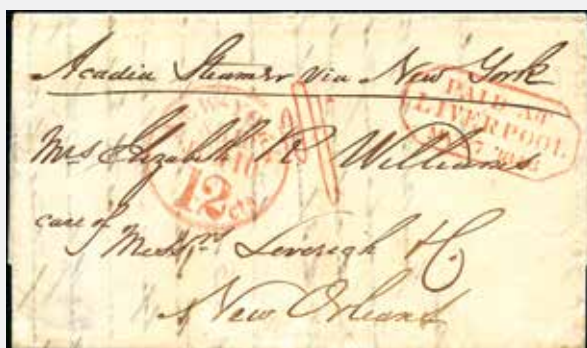 Acadia Steamer via New York
PAID AT
LIVERPOOL
Mrs Elizabeth R Williams
12 cts
care of Messrs Leverich & Co
New Orleans